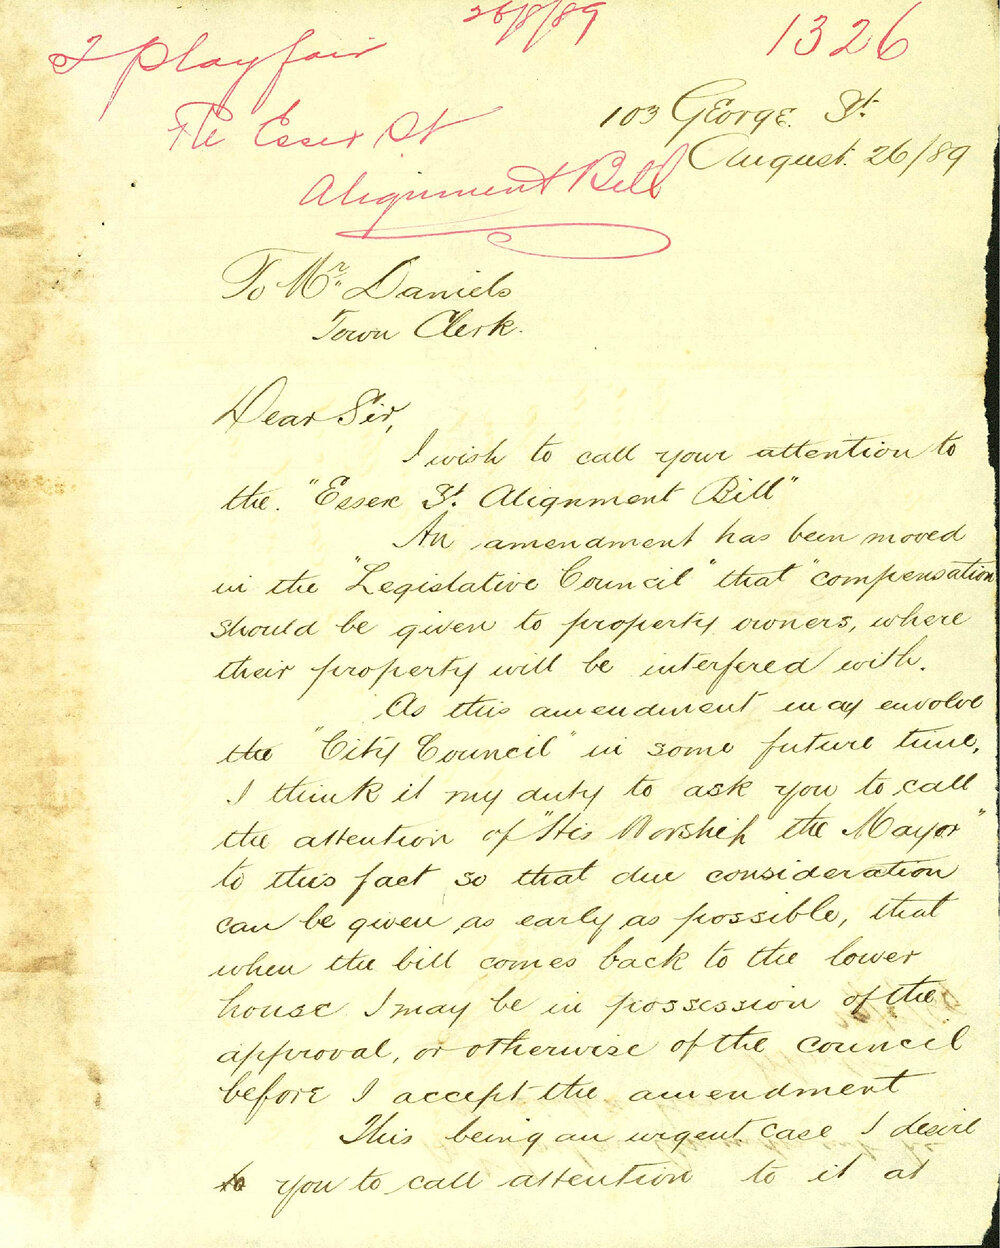 26/8/89
1326
T Playfair
Re Essex St
Alignment Bill
103 George. St.
August. 26/89
To Mr. Daniels
Town Clerk.
Dear Sir,
I wish to call your attention to
the. "Essex St. Alignment Bill"
An amendment has been moved
in the "Legislative Council" that "compensation
should be given to property owners, where
their property will be interfered with.
As this amendment may envolve
the "City Council" in some future time,
I think it my duty to ask you to call
the attention of "His Worship the Mayor"
to this fact so that due consideration
can be given as early as possible, that
when the bill comes back to the lower
house I may be in possession of the
approval, or otherwise of the council
before I accept the amendment
This being an urgent case I desire
to you to call attention to it at